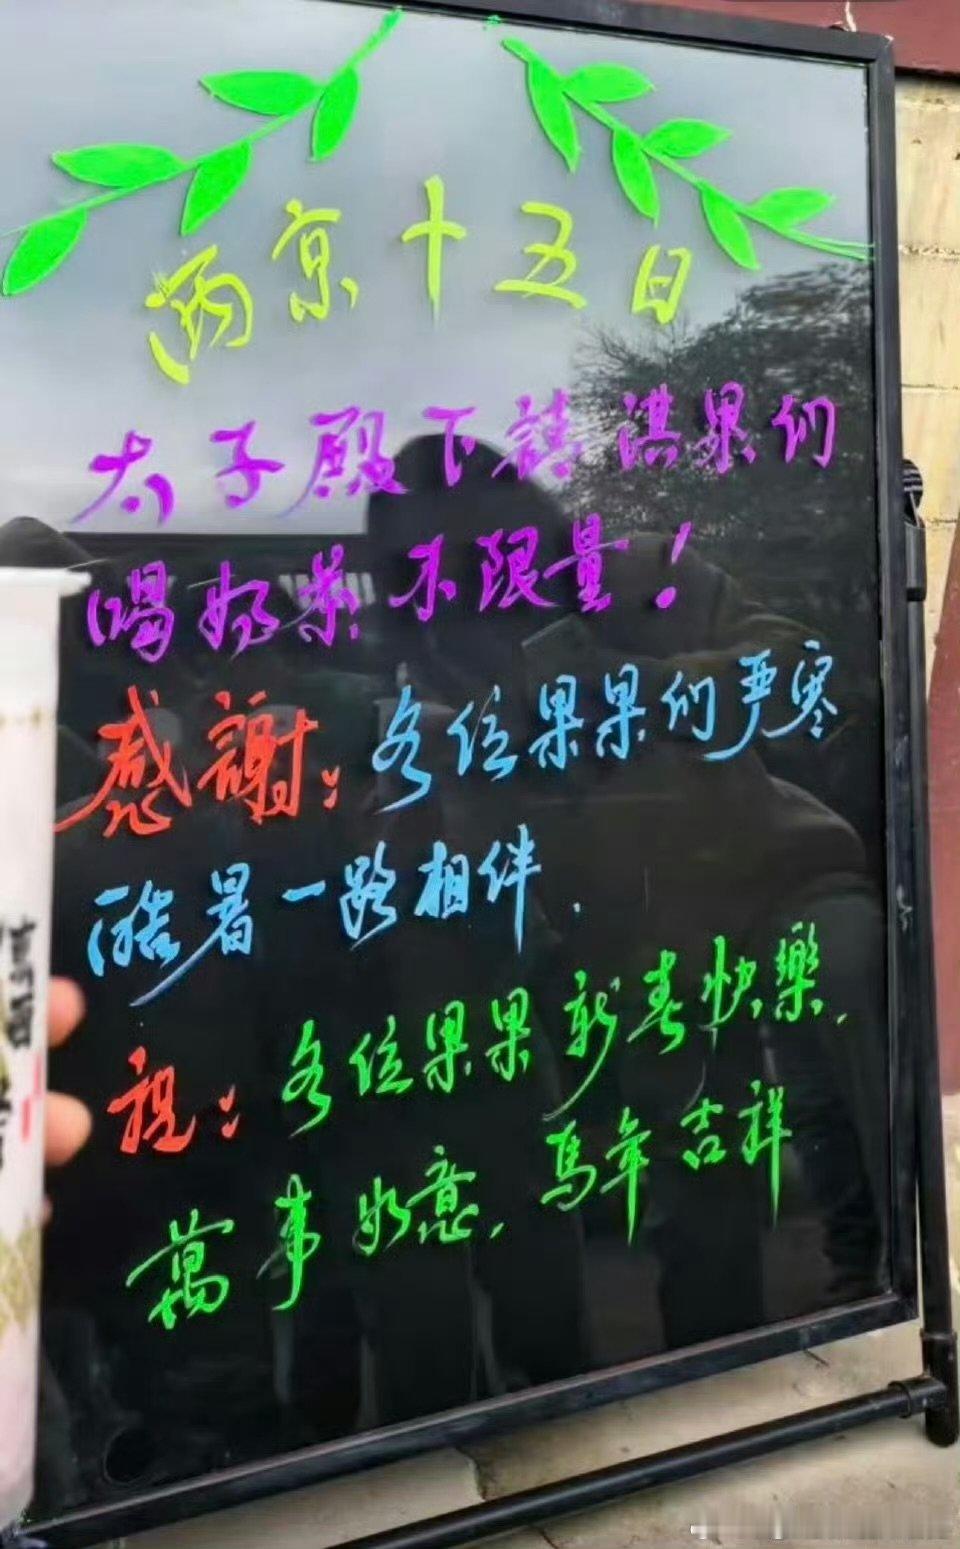 两京十五日
太子殿下請洪果们
喝奶茶不限量！
感謝：各位果果们严寒
酷暑一路相伴．
祝：各位果果新春快樂．
萬事如意．馬年吉祥